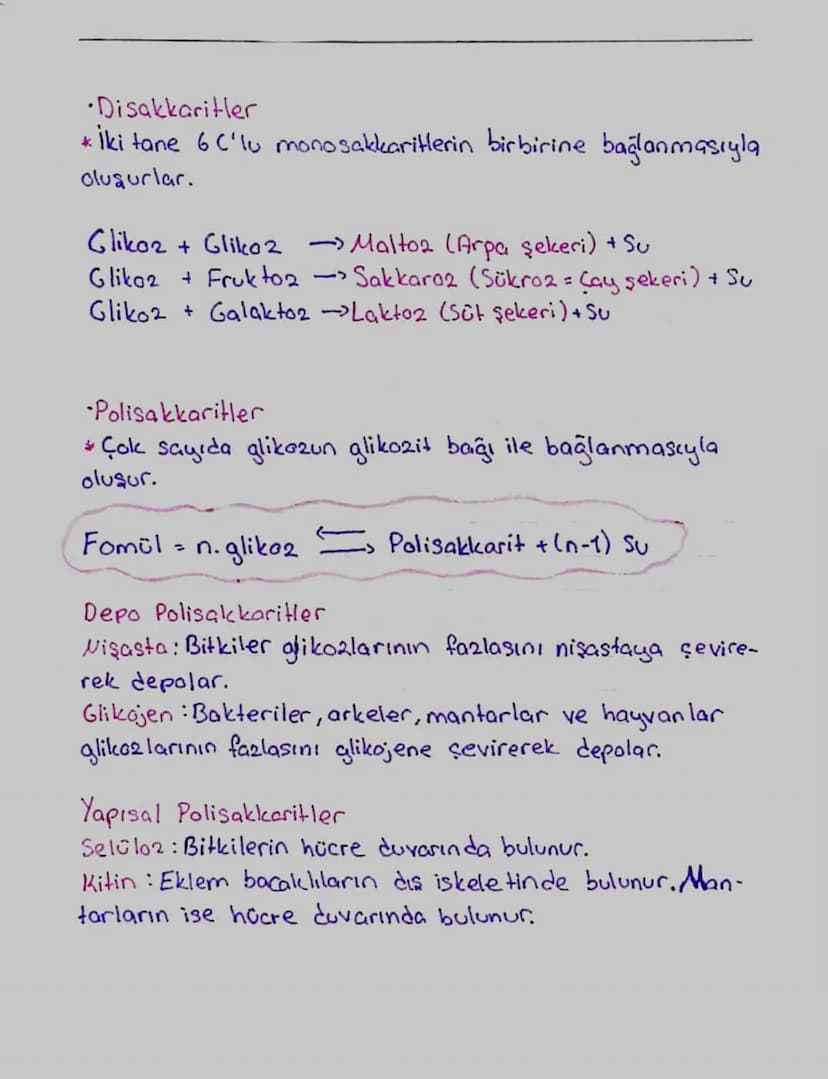 •Disakkaritler
* İki tane 6 C'lu monosakkaritlerin birbirine bağlanmasıyla
oluşurlar.
Glikoz + Glikoz → Maltoz (Arpa şekeri) + Su
Glikoz + Fruktoz → Sakkaroz (Sükroz = Çay şekeri) + Su
Glikoz + Galaktoz → Laktoz (Süt şekeri) + Su
•Polisakkaritler
* Çok sayıda glikozun glikozit bağı ile bağlanmasıyla
oluşur.
Fomül = n. glikoz ⇆ Polisakkarit + (n-1) Su
Depo Polisakkaritler
Nişasta : Bitkiler glikozlarının fazlasını nişastaya çevire-
rek depolar.
Glikojen : Bakteriler, arkeler, mantarlar ve hayvanlar
glikozlarının fazlasını glikojene çevirerek depolar.
Yapısal Polisakkaritler
Selüloz : Bitkilerin hücre duvarında bulunur.
Kitin : Eklem bacaklıların dış iskeletinde bulunur. Man-
tarların ise hücre duvarında bulunur.